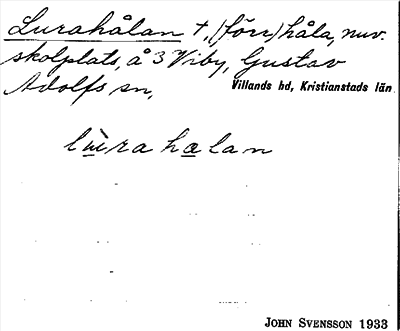 Lurahålan †, (förr) håla, nuv.
skolplats, å 3 Viby, Gustav
Adolfs sn, Villands hd, Kristianstads län
lùra halan
JOHN SVENSSON 1933